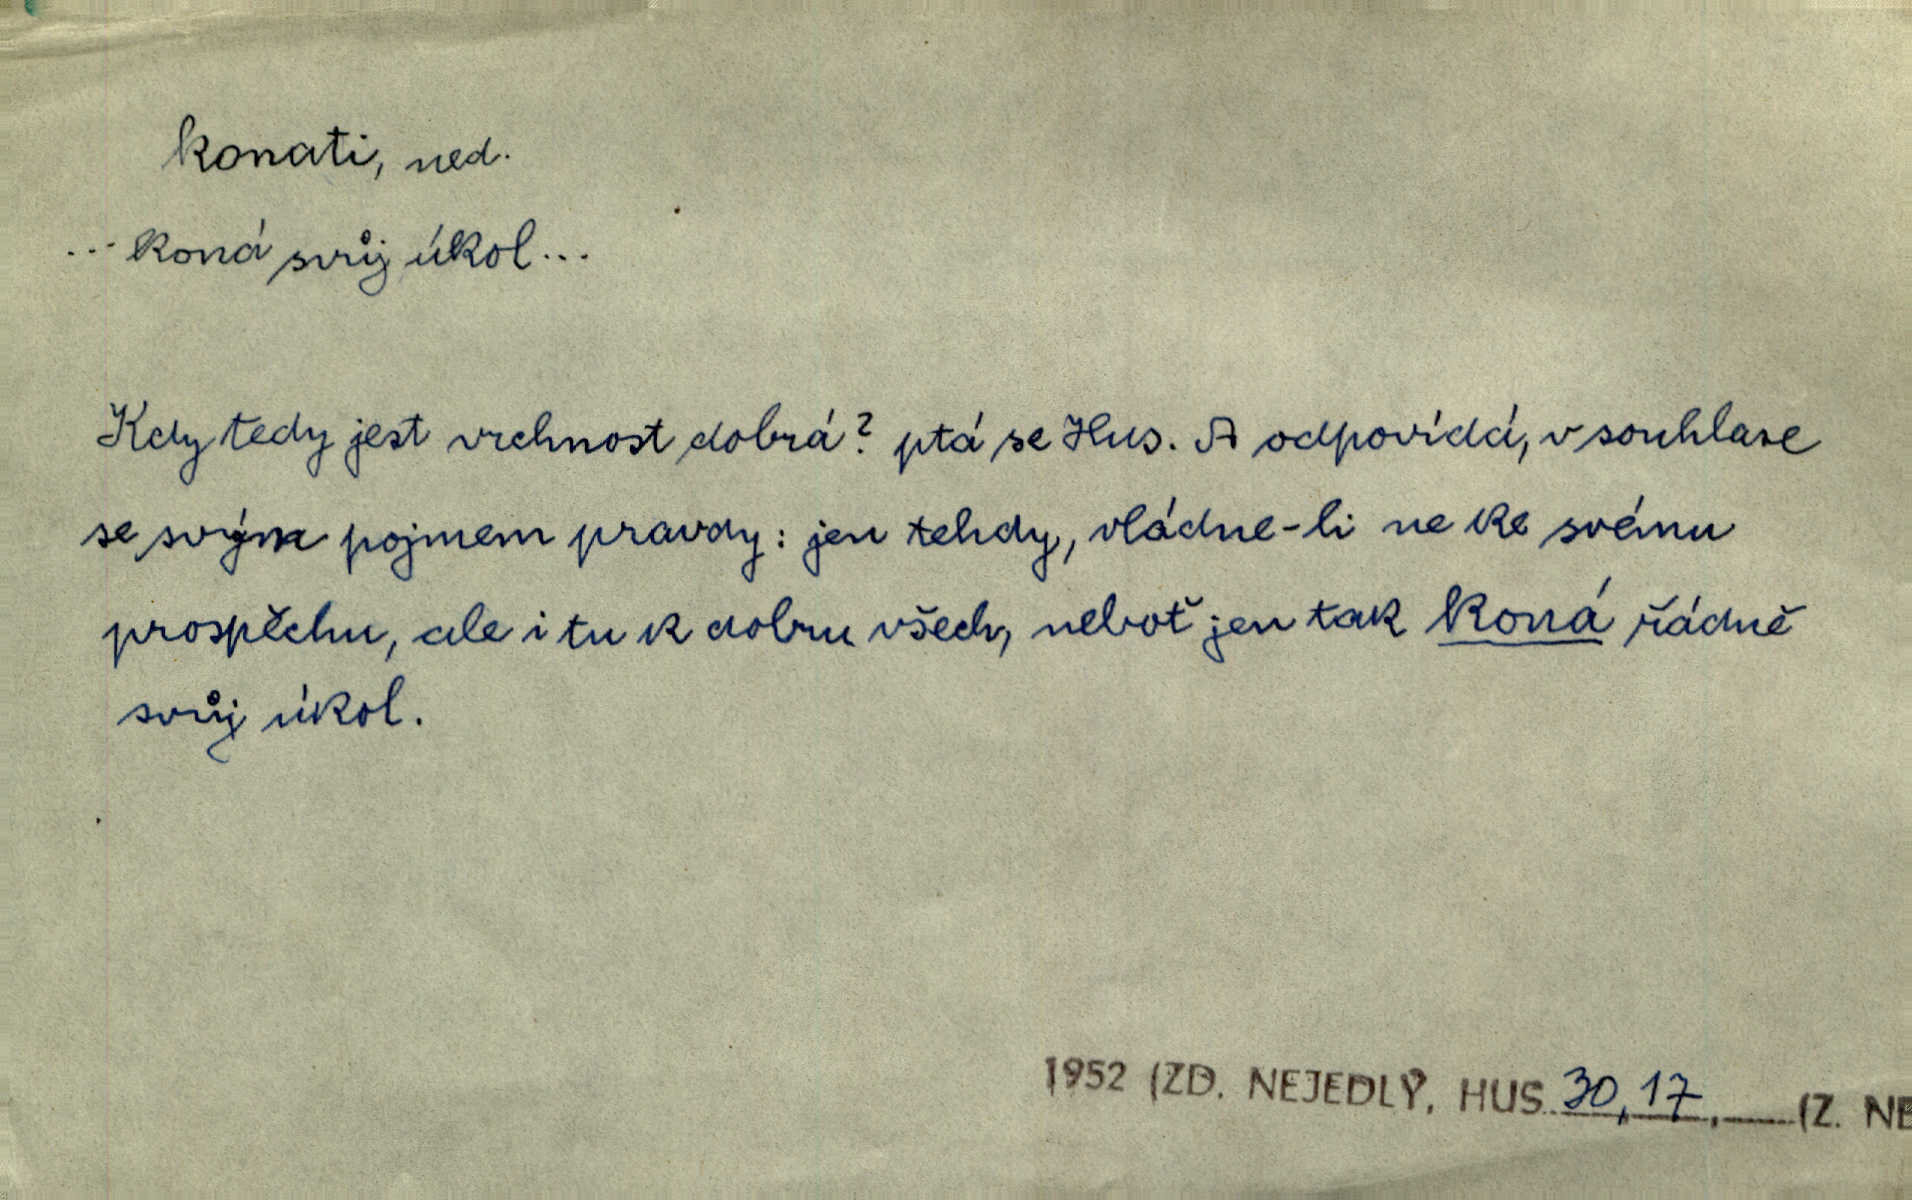 konati, ned.
... koná svůj úkol...
Kdy tedy jest vrchnost dobrá? ptá se Hus. A odpovídá, v souhlase
se svým pojmem pravdy: jen tehdy, vládne-li ne ke svému
prospěchu, ale i tu k dobru všech, neboť jen tak koná řádně
svůj úkol.
1952 (ZD. NEJEDLÝ, HUS 30,17, (Z. NE